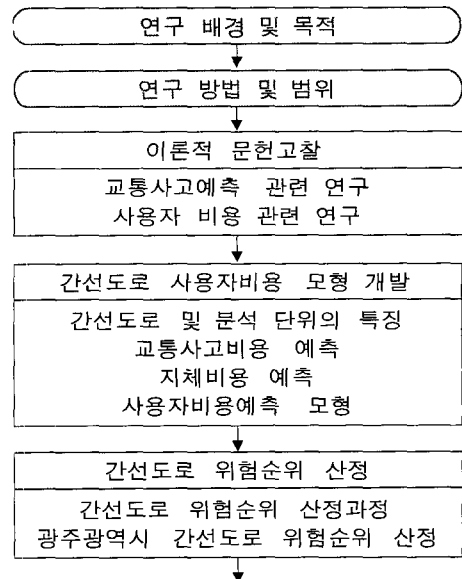 연구 배경 및 목적
연구 방법 및 범위
이론적 문헌고찰
교통사고예측 관련 연구
사용자 비용 관련 연구
간선도로 사용자비용 모형 개발
간선도로 및 분석 단위의 특징
교통사고비용 예측
지체비용 예측
사용자비용예측 모형
간선도로 위험순위 산정
간선도로 위험순위 산정과정
광주광역시 간선도로 위험순위 산정